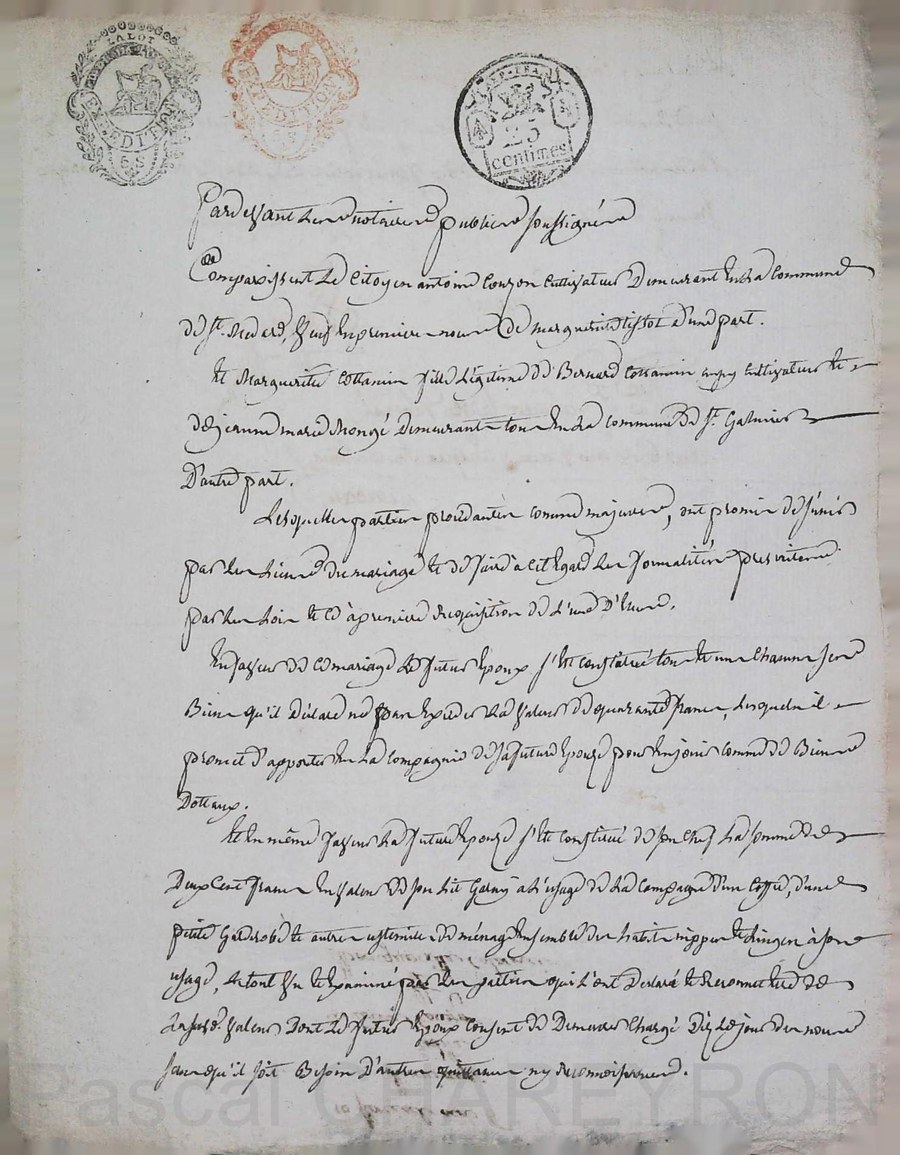 LA LOI
EXPÉDITION
5 S
EXPÉDITION
REP. FRA.
25
centimes
Pardevant Les notaires publics soussignés
Comparissent Le Citoyen antoine Couzon Cultivateur Demeurant En La Commune
de St. Medard, veuf En premiere noces de marguerite tissot d'une part.
Et Marguerite Cottancin fille Légitime de Bernard Cottancin Cultivateur Et
de jeanne marie Mongé Demeurants tous En La Commune de St. Galmier
D'autre part.
Lesquelles parties procédantes comme majeures, ont promis de s'unir
par Les Liens du mariage Et de faire a cet Egard Les formalités prescrites
par Les Loix Et ce à premiere Requisition de L'une D'Elles.
En faveur de Ce mariage Le futur Epoux s'Est Constitué tous Et uns Chacuns ses
Biens qu'il Déclare ne pas Exceder La valeur de quarante francs, Lesquels il
promet d'apporter En La Compagnie de sa future Epouse pour En jouir comme de Biens
Dotaux.
Et En même faveur La future Epouse s'Est Constitué de son Chef La somme de
Deux Cent francs En valeur de son Lit Garny a L'usage de La Campagne d'un Coffre, d'une
petite Garderobe Et autres ustensiles de ménage Ensemble des habits nippes Et Linges à son
usage, Le tout vu Et Examiné par Les parties qui L'ont Declaré Et Reconnu Etre de
La susd. valeur Dont Le futur Epoux Consent de Demeurer Chargé Dès Le jour des noces
sans qu'il soit Besoin D'autres quittances ny Reconnoissances.
Pascal CHAREYRON